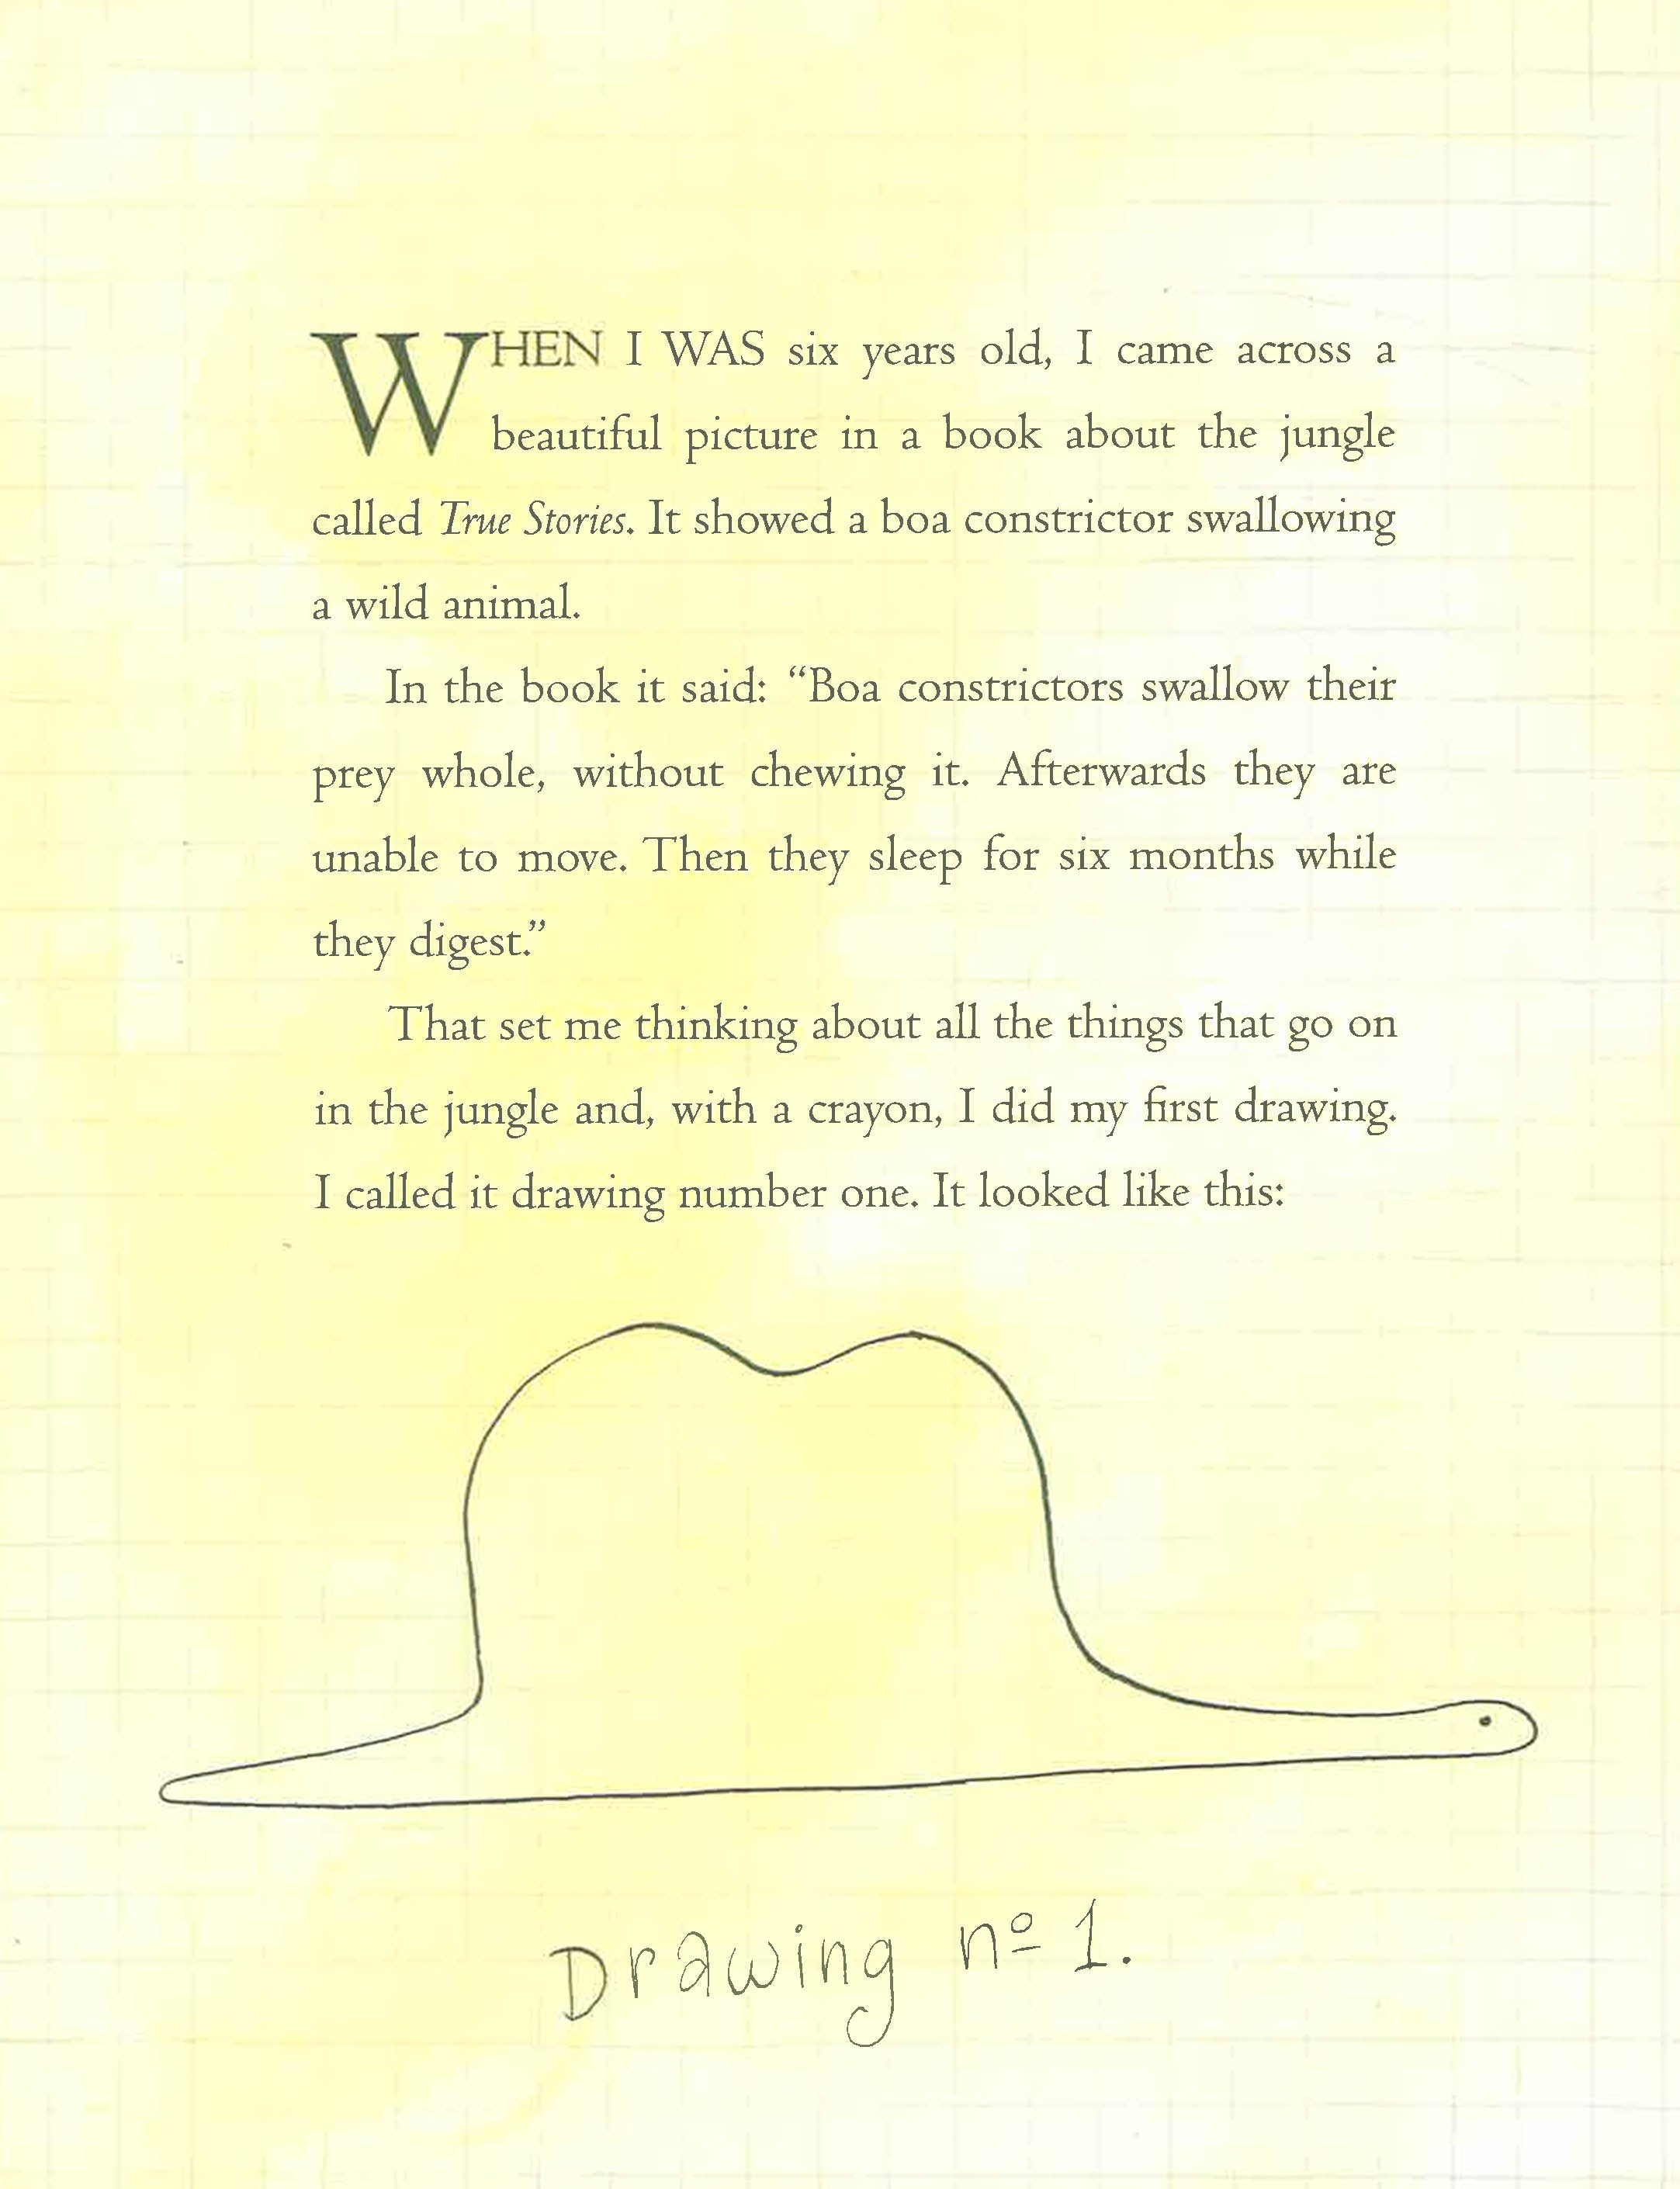 WHEN I WAS six years old, I came across a
beautiful picture in a book about the jungle
called True Stories. It showed a boa constrictor swallowing
a wild animal.
In the book it said: “Boa constrictors swallow their
prey whole, without chewing it. Afterwards they are
unable to move. Then they sleep for six months while
they digest.”
That set me thinking about all the things that go on
in the jungle and, with a crayon, I did my first drawing.
I called it drawing number one. It looked like this:
Drawing nº 1.